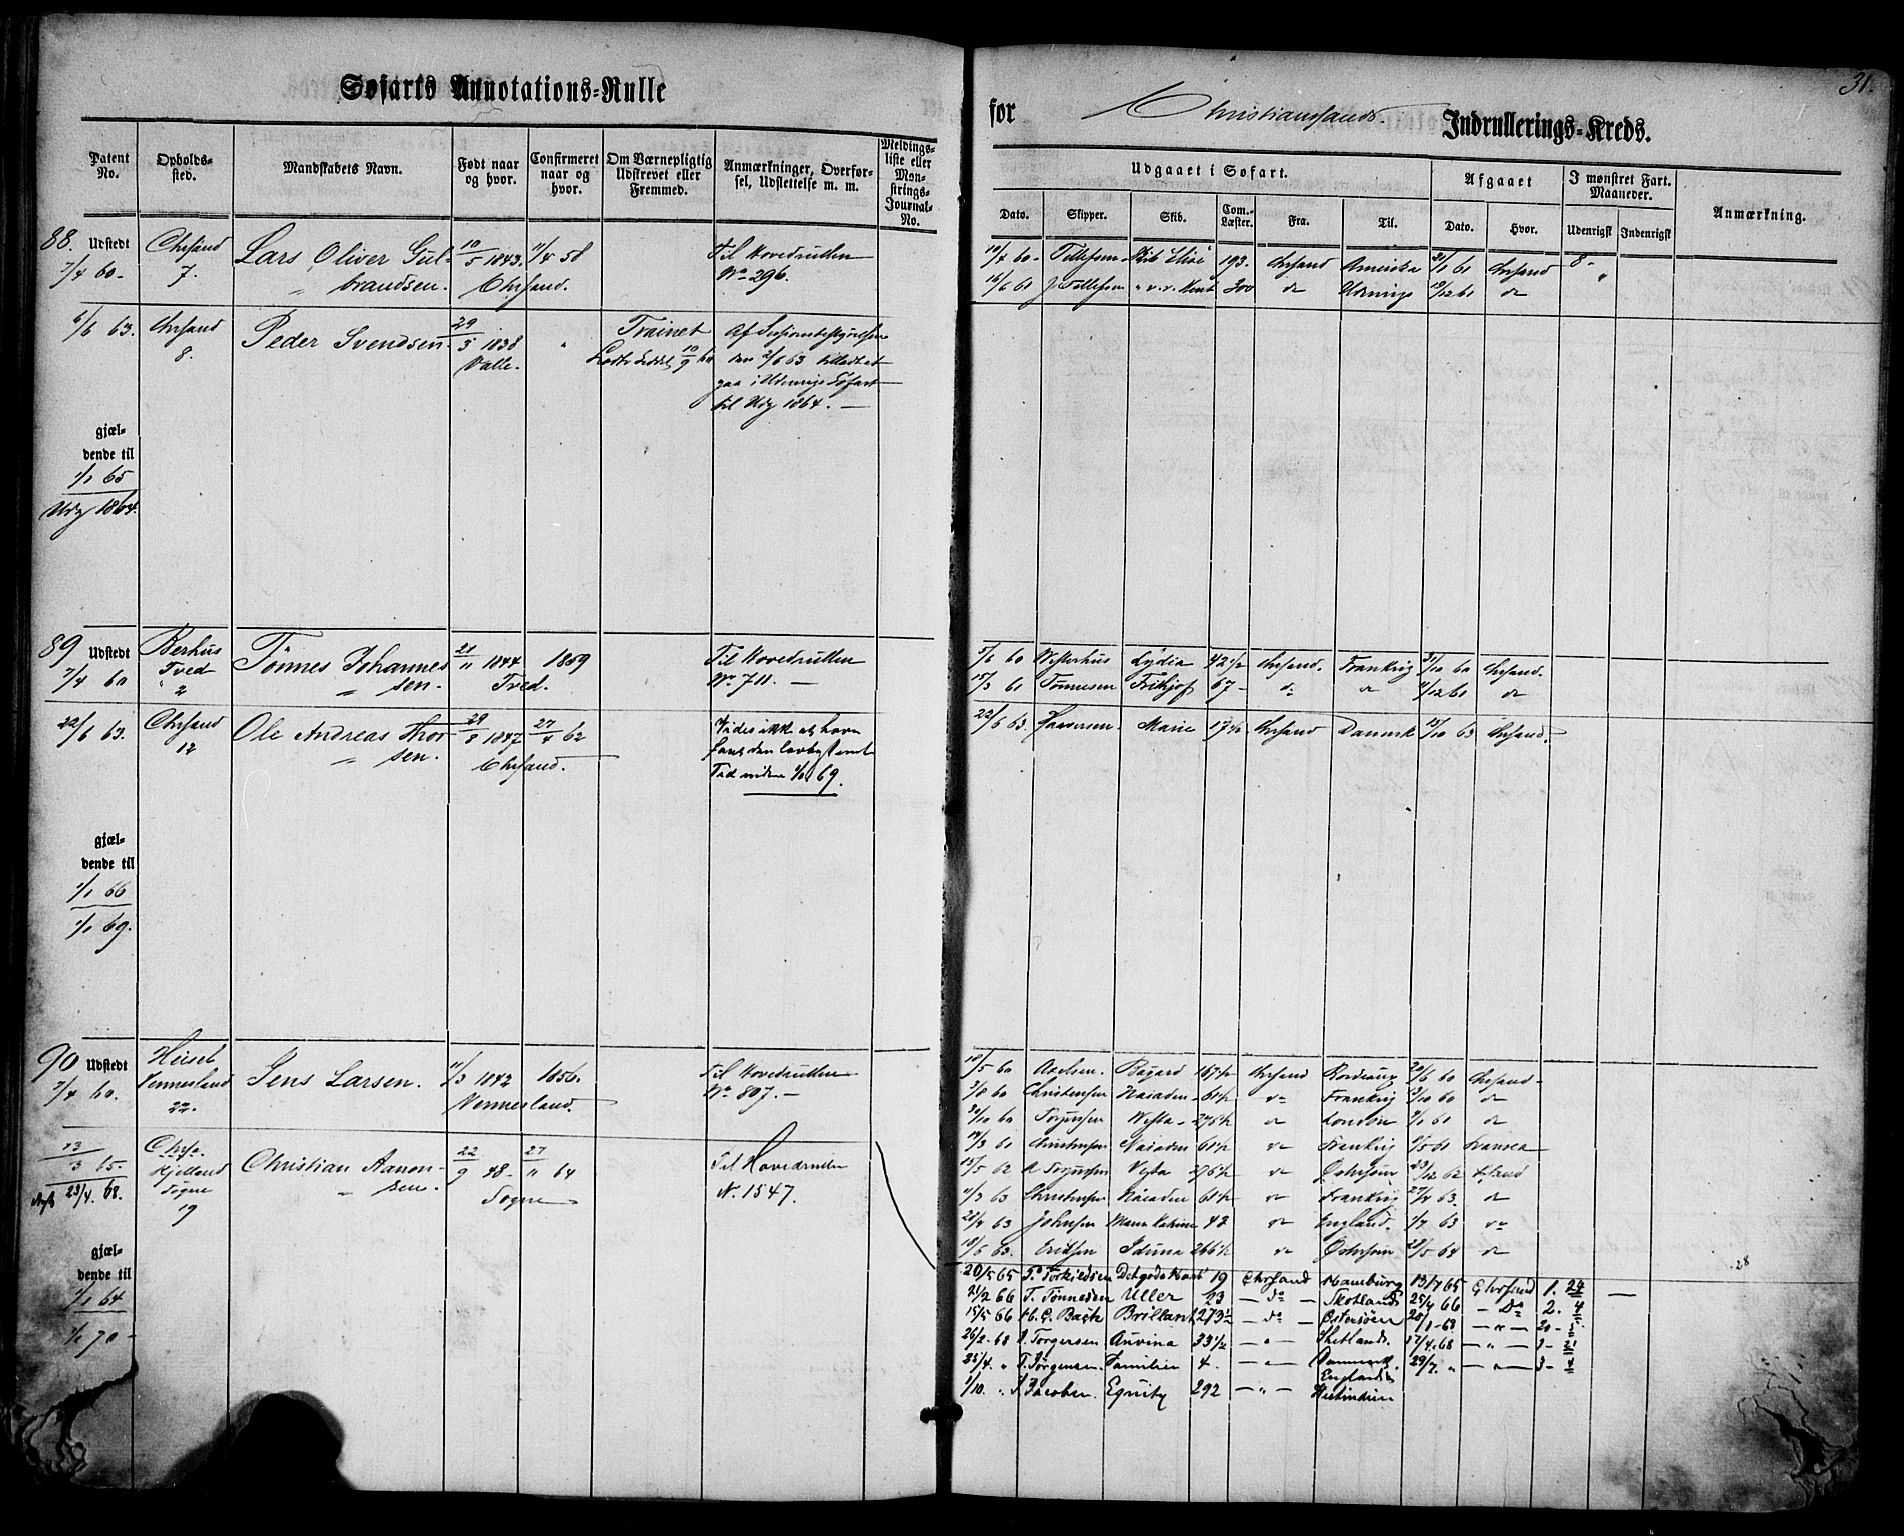 31.
Søfarts Annotations-Rulle
for Christianssands Indrullerings-Kreds.
Patent No.
Opholds-sted.
Mandskabets Navn.
Født naar og hvor.
Confirmeret naar og hvor.
Om Værnepligtig Udskrevet eller Fremmed.
Anmærkninger, Overførsel, Udslettelse m. m.
Meldings-liste eller Mønstrings-Journal-No.
Udgaaet i Søfart.
Afgaaet
I mønstret Fart. Maaneder.
Anmærkning.
Dato. Skipper. Skib. Com.-Læster. Fra. Til. Dato. Hvor. Udenrigsk Indenrigsk
88. Udstedt 7/4 60-
Chrsand 7.
Lars Oliver Gul-
" brandsen.
10/5 1843. Chrsand.
11/4 58
Til Hovedrullen
No 296.
10/4 60- Tellefsen Elise 193. Chrsand Amerika 31/1 61 Chrsand 8-
16/6 61 J. Tellefsen 300 do Udenrigs 19/12 61 do "
6/6 63. Chrsand 8.
Peder Svendsen
29/5 1838 Valle.
Trainet
10/9 60
Af Sessionsbestyrelsen
den 2/6 63 tilladt at
gaa i Udenrigs Søfart
til Udg 1864. —
gjæl-
dende til
1/1 65
Udg 1864.
89 Udstedt 7/4 60
Berhus
Tved
2
Tönnes Johannes
" sen.
21/11 1844 Tved.
1859
Til Hovedrullen
No 711. —
5/6 60 Westerhus Lydia 42 1/2 Chrsand. Frankrig 31/10 60 Chrsand.
15/3 61 Tönnesen Frithjof 67- do do 11/12 61 do
22/6 63. Chrsand 12
Ole Andreas Thor
" sen.
29/8 1847 Chrsand.
27/4 62
Vides ikke at have
fare den lovbestemt
Tid inden 1/1 69.
22/6 63. Marie 17 1/2 Chrsand Danmark 15/10 63 Chrsand.
gjæl-
dende til
1/1 66
1/1 69.
90 Udstedt 7/4 60.
Heisel
Vennesland
22.
Jens Larsen.
11/3 1842 Vennesland.
1856.
Til Hovedrullen
No 807. —
18/5 60 Axelsen. Chrsand Bordeaux 22/6 60 Chrsand-
3/8 60 Christensen Naiaden 61 1/2 do Frankrig 2/10 60 do
20/10 60 Torgersen Vesta- 276 1/2 do London 7/1 61 do
14/3 61 Christensen Naiaden 61 1/2 do Frankrig 9/5 61
15/5 62 Torgersen Vesta 276 1/2 do Østersøen 23/12 62
11/3 63 Christensen Naiaden 61 1/2 do Frankrig 27/4 63. do
28/4 63 Johnsen 42 do England. 1/7 63 do
18/6 63. Eriksen Iduna 266 1/2 do Østersøen 28/5 64 do
13/3 65.
23/4. 68.
Kjelland
Søgne
19
Christian Aanon-
" sen.
22/9 48- Søgne
27/11 64
Til Hovedrullen
N. 1547.
gjæl-
dende til
1/1 64
1/1 70-
20/5 65 T. Torkildsen Det gode Haab 19 Chrsand Hamburg 13/7 65 Chrsand 1. 24
21/2 66 T. Tønnesen Uller 23 — do — Skotland 25/4 66 — Do 2. 4
15/5 66 H. C. Back Brillant 273 1/2 — do — Østersøen 20/1-68 — " — 20-
26/2-68 A. Torgersen Auvina 33 1/2 — " — Shetland. 17/4.68 — " — 3-
25/4. " T. Jørgensen. Familien 4. — " — Danmark. 29/7. " — " — 3-
1/10. " S. Jacobsen. Equity 292 — " — England
Vestindien
28